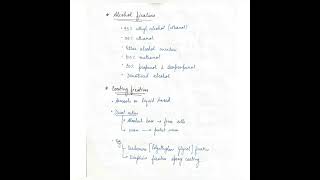 Alcohol fixatives
• 95% ethyl alcohol (ethanol)
• ethanol
• Ether alcohol
• 100% methanol
• 80% propanol & isopropanol
• Denatured alcohol
Coating fixatives
• Aerosols or liquid based
• Dual action
Alcohol base → fixes cells
wax → protect
Eg
[Polyethylene Glycol] fixative
fixative spray coating